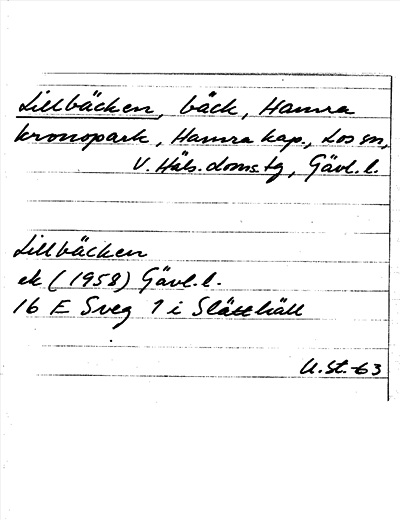 Lillbäcken, bäck, Hamra
kronopark, Hamra kap., Los sn,
V. Häls. doms.tg, Gävl.l.
Lillbäcken
ek (1958) Gävl.l.
16 E Sveg 7 i Slåtthäll
U.St.-63